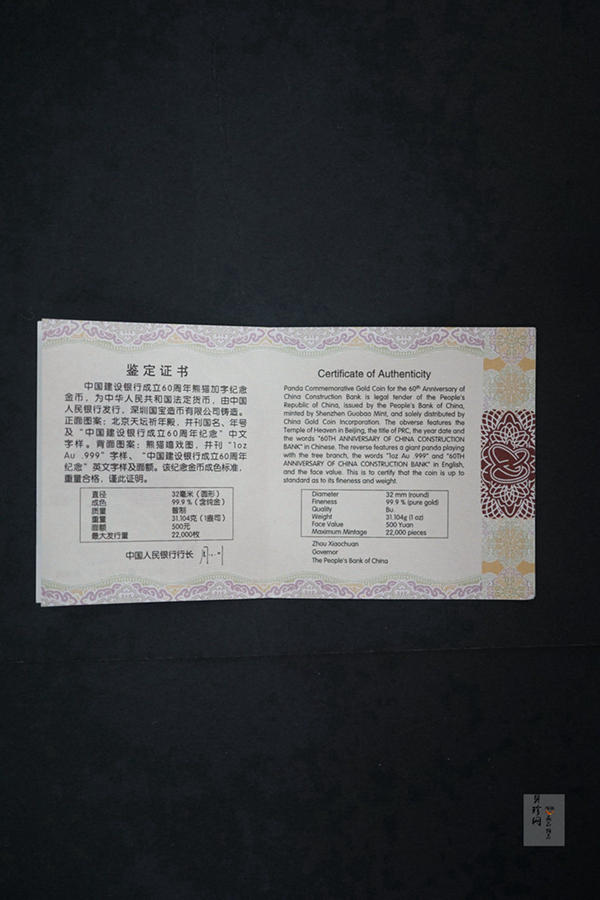 鉴定证书
中国建设银行成立60周年熊猫加字纪念
金币，为中华人民共和国法定货币，由中国
人民银行发行，深圳国宝造币有限公司铸造。
正面图案：北京天坛祈年殿，并刊国名、年号
及“中国建设银行成立60周年纪念”中文
字样。背面图案：熊猫嬉戏图，并刊“1oz
Au .999”字样、“中国建设银行成立60周年
纪念”英文字样及面额。该纪念金币成色标准，
重量合格，谨此证明。
直径 32毫米（圆形）
成色 99.9%（含纯金）
质量 普制
重量 31.104克（1盎司）
面额 500元
最大发行量 22,000枚
中国人民银行行长
Certificate of Authenticity
Panda Commemorative Gold Coin for the 60th Anniversary of
China Construction Bank is legal tender of the People's
Republic of China, issued by the People's Bank of China,
minted by Shenzhen Guobao Mint, and solely distributed by
China Gold Coin Incorporation. The obverse features the
Temple of Heaven in Beijing, the title of PRC, the year date and
the words "60TH ANNIVERSARY OF CHINA CONSTRUCTION
BANK" in Chinese. The reverse features a giant panda playing
with the tree branch, the words "1oz Au .999" and "60TH
ANNIVERSARY OF CHINA CONSTRUCTION BANK" in English,
and the face value. This is to certify that the coin is up to
standard as to its fineness and weight.
Diameter 32 mm (round)
Fineness 99.9 % (pure gold)
Quality Bu.
Weight 31.104g (1 oz)
Face Value 500 Yuan
Maximum Mintage 22,000 pieces
Zhou Xiaochuan
Governor
The People's Bank of China